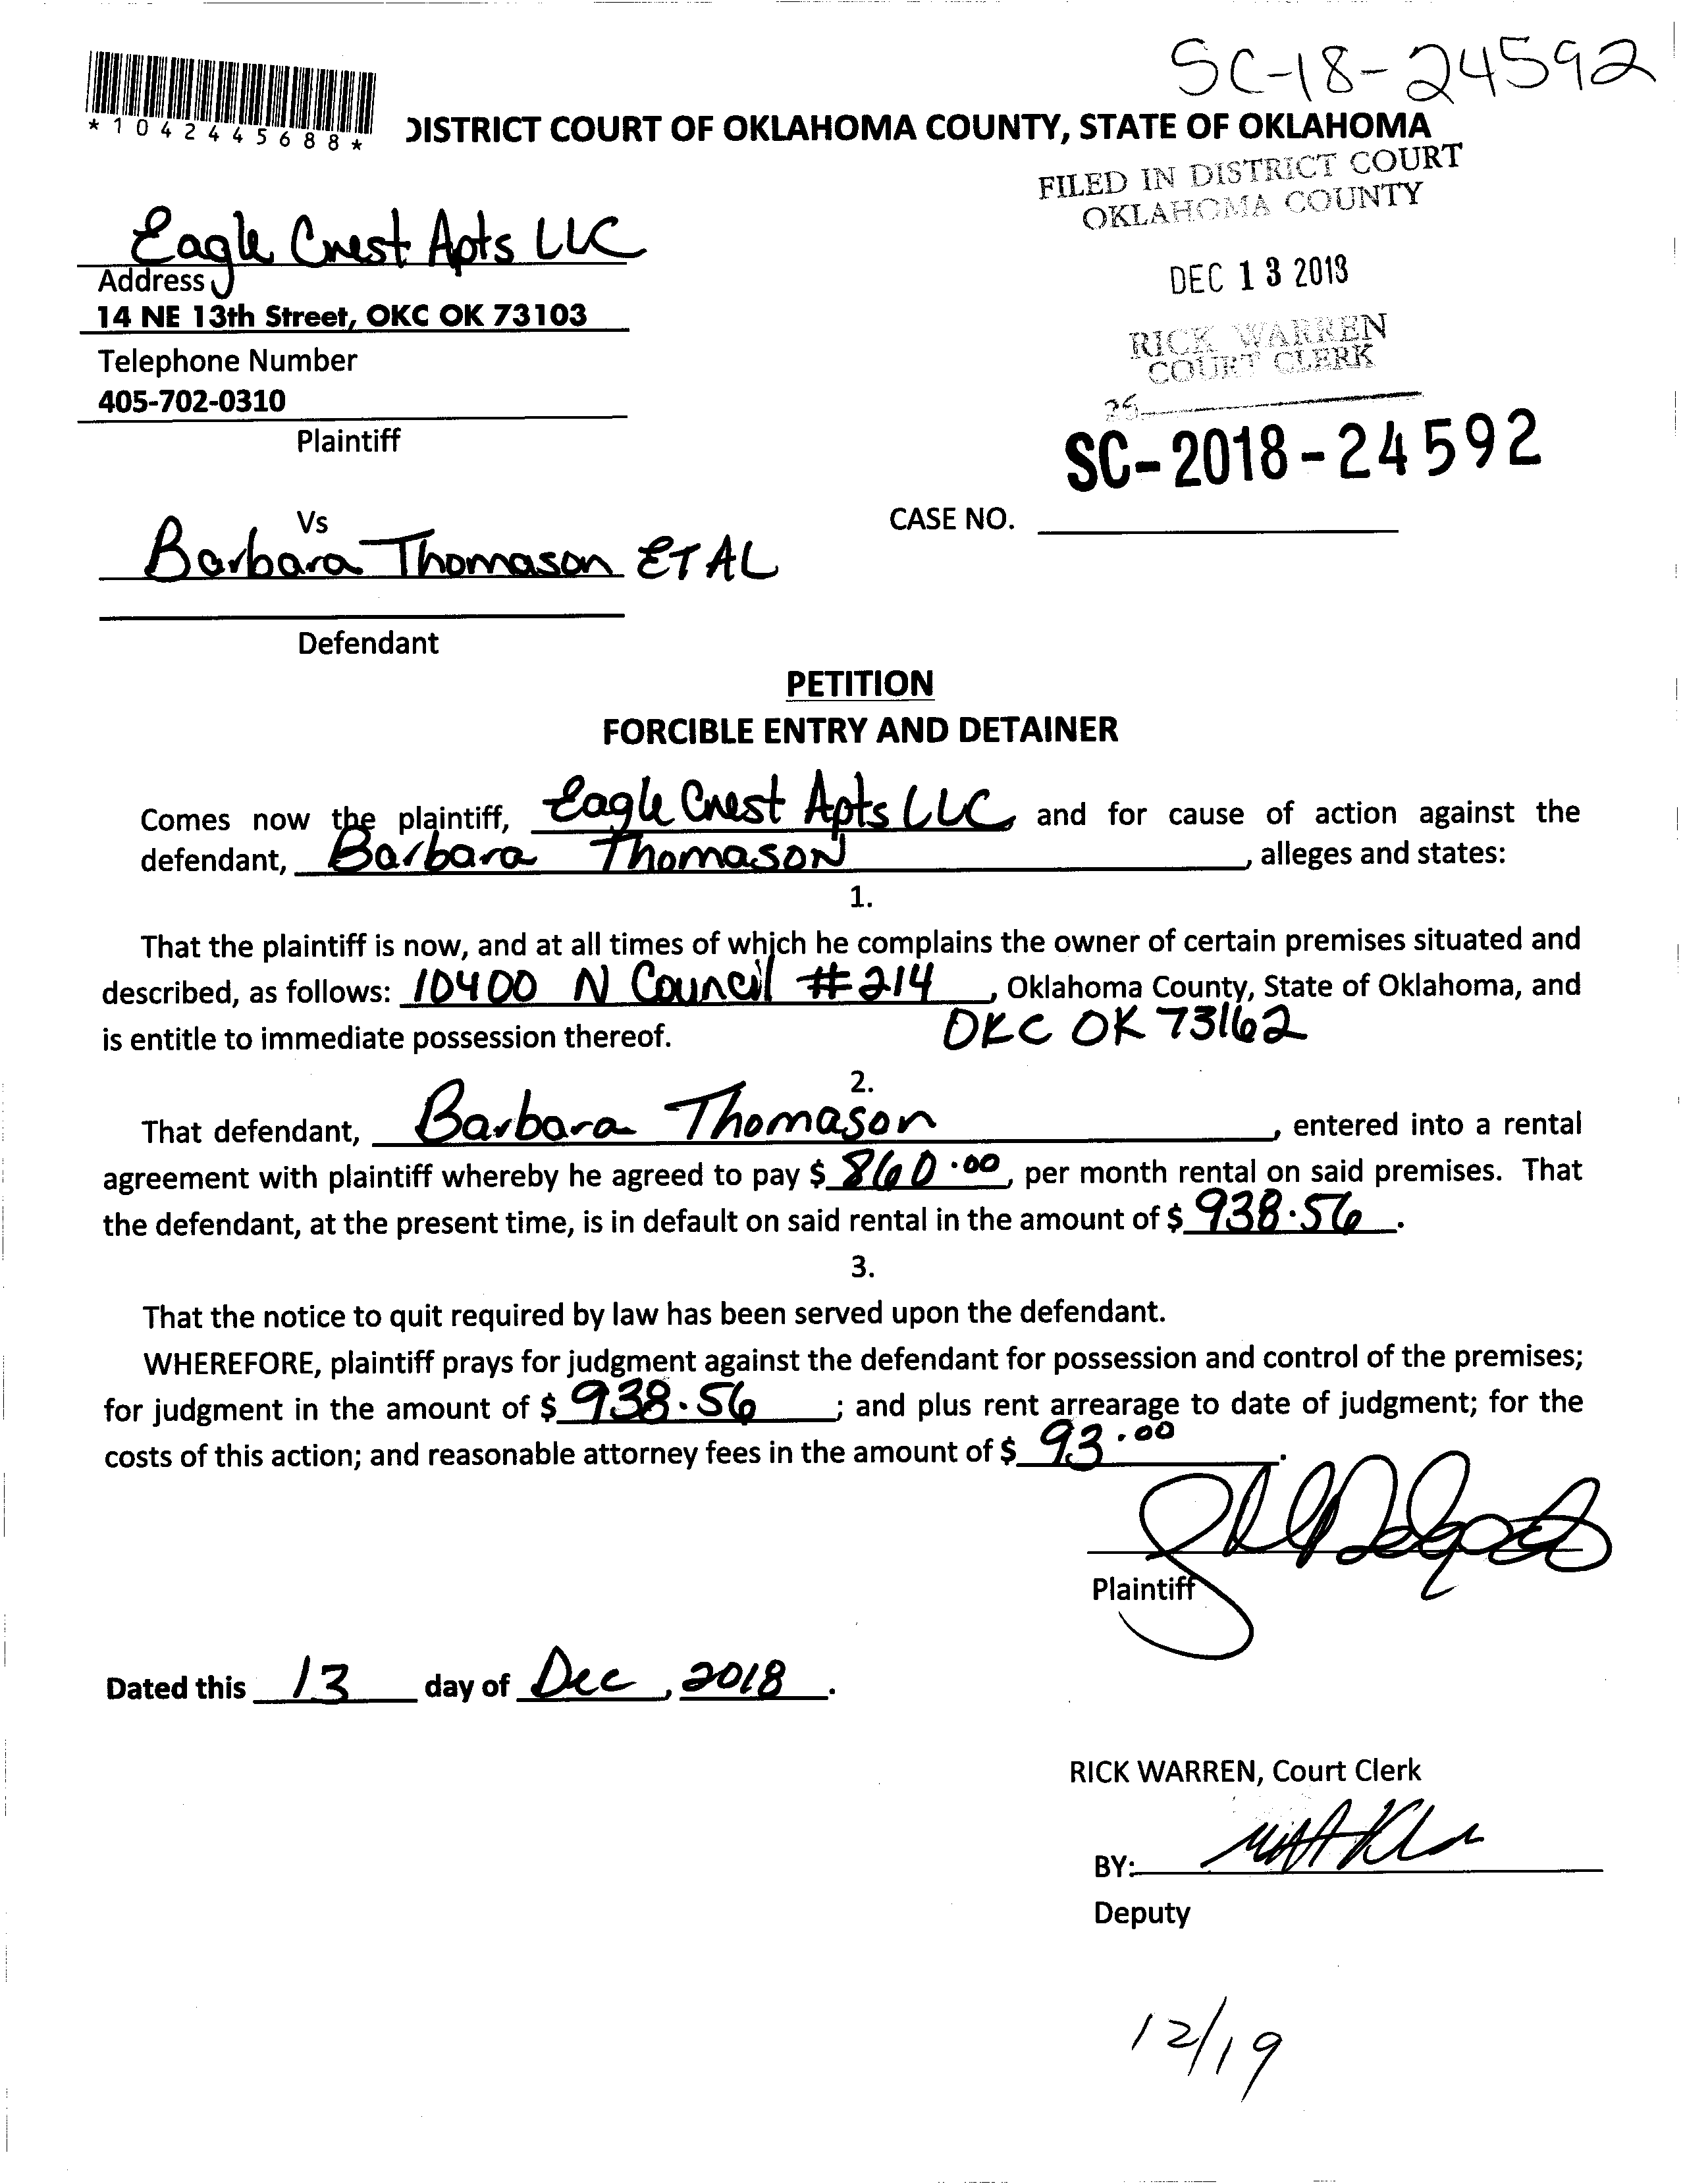 SC-18-24592
*1042445688*
DISTRICT COURT OF OKLAHOMA COUNTY, STATE OF OKLAHOMA
FILED IN DISTRICT COURT
OKLAHOMA COUNTY
Eagle Crest Apts LLC
Address
DEC 13 2018
14 NE 13th Street, OKC OK 73103
RICK WARREN
COURT CLERK
Telephone Number
405-702-0310
Plaintiff
SC-2018-24592
Vs
CASE NO.
Barbara Thomason ET AL
Defendant
PETITION
FORCIBLE ENTRY AND DETAINER
Comes now the plaintiff, Eagle Crest Apts LLC and for cause of action against the
defendant, Barbara Thomason, alleges and states:
1.
That the plaintiff is now, and at all times of which he complains the owner of certain premises situated and
described, as follows: 10400 N Council #214, Oklahoma County, State of Oklahoma, and
is entitle to immediate possession thereof. OKC OK 73162
2.
That defendant, Barbara Thomason, entered into a rental
agreement with plaintiff whereby he agreed to pay $ 860.00, per month rental on said premises. That
the defendant, at the present time, is in default on said rental in the amount of $ 938.56.
3.
That the notice to quit required by law has been served upon the defendant.
WHEREFORE, plaintiff prays for judgment against the defendant for possession and control of the premises;
for judgment in the amount of $ 938.56; and plus rent arrearage to date of judgment; for the
costs of this action; and reasonable attorney fees in the amount of $ 93.00.
Plaintiff
Dated this 13 day of Dec, 2018.
RICK WARREN, Court Clerk
BY:
Deputy
12/19